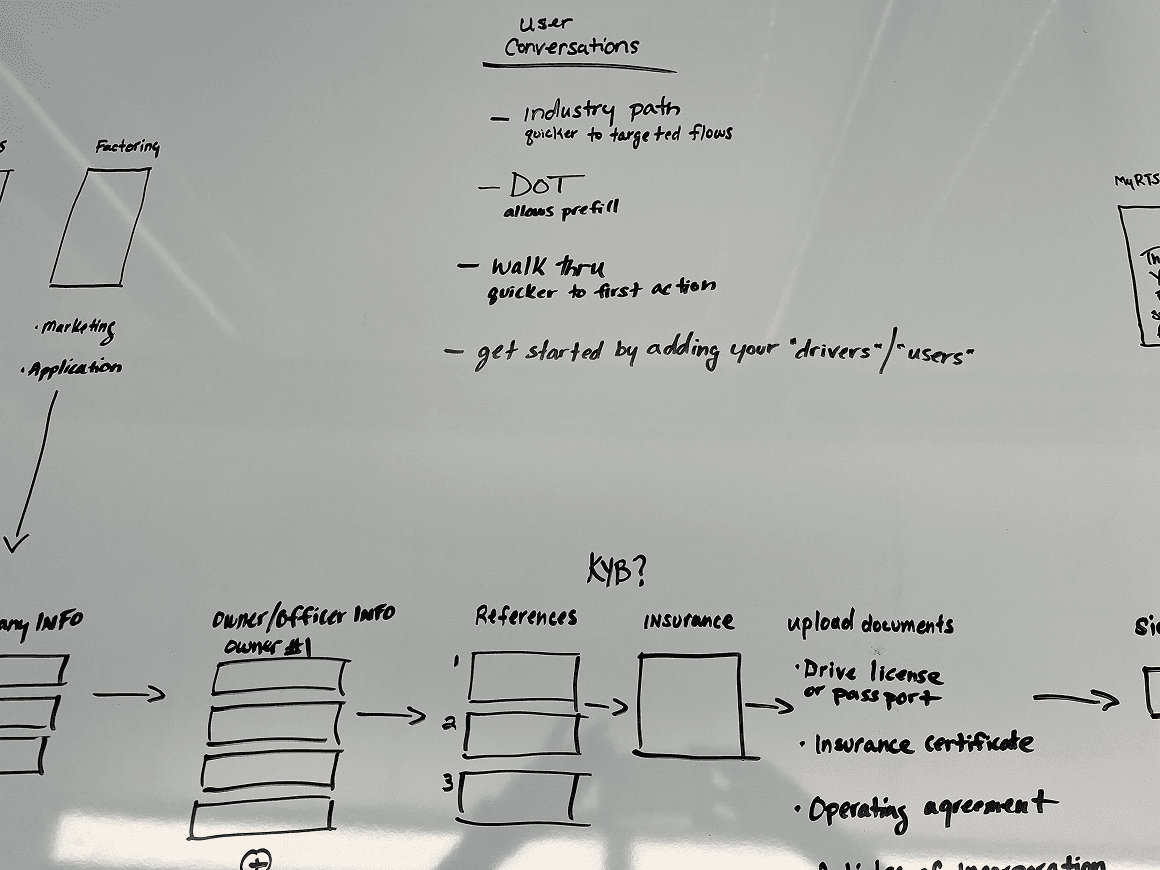 User
Conversations
- industry path
quicker to targeted flows
- DOT
allows prefill
- walk thru
quicker to first action
- get started by adding your "drivers"/"users"
Factoring
· Marketing
· Application
MyRTS
KYB?
INFO
Owner/Officer INFO
owner #1
References
1
2
3
INSURANCE
upload documents
· Drive license
or passport
· Insurance certificate
· Operating agreement
Articles of incorporation